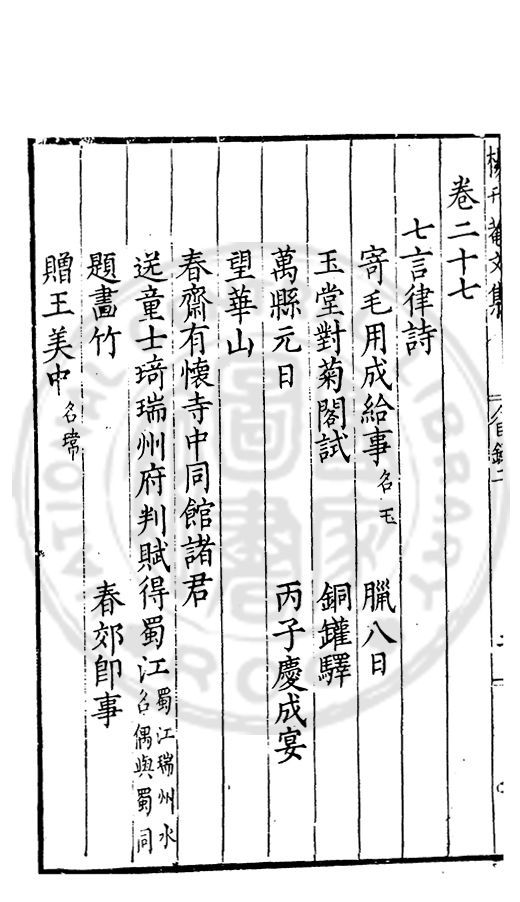 楊升菴文集
卷二十七
七言律詩
寄毛用成給事名玉　臘八日
玉堂對菊閣試　銅鑵驛
萬縣元日　丙子慶成宴
望華山
春齋有懷寺中同館諸君
送童士琦瑞州府判賦得蜀江蜀江瑞州水名偶與蜀同
題畫竹　春郊即事
贈王美中名瓀